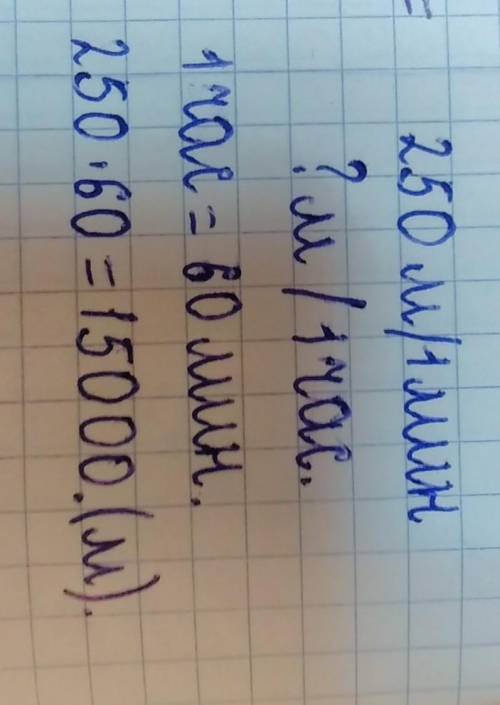 250 м/1 мин
? м/1 час.
1 час = 60 мин.
250·60=15000.(м).